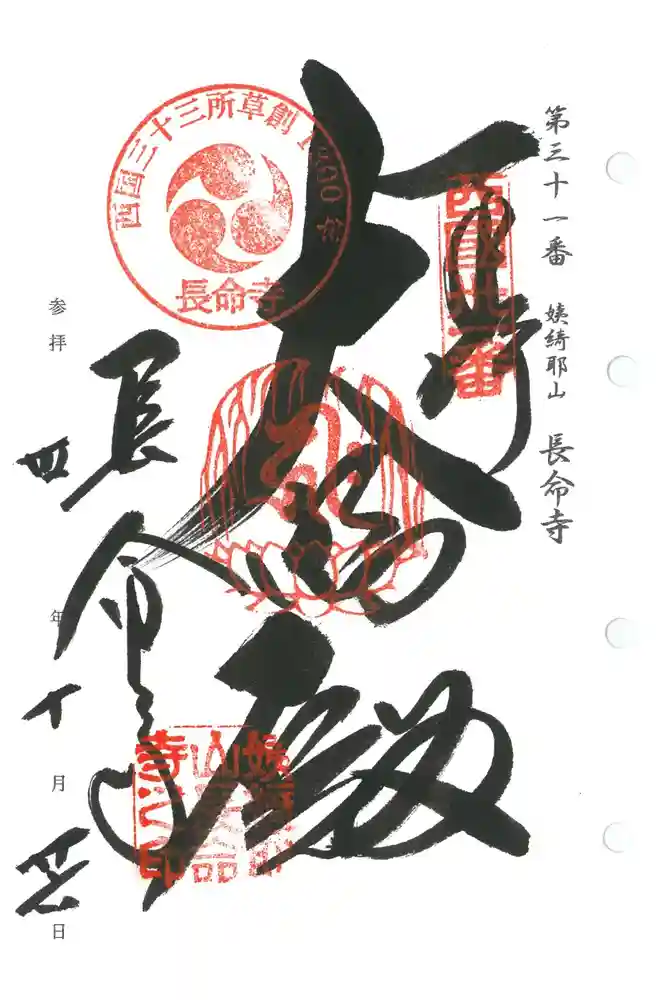 第三十一番 姨綺耶山 長命寺
奉拝
西國卅一番
大悲殿
西国三十三所草創1300年
長命寺
長命寺
参拝 四年十月廿六日
姨綺耶山長命寺之印